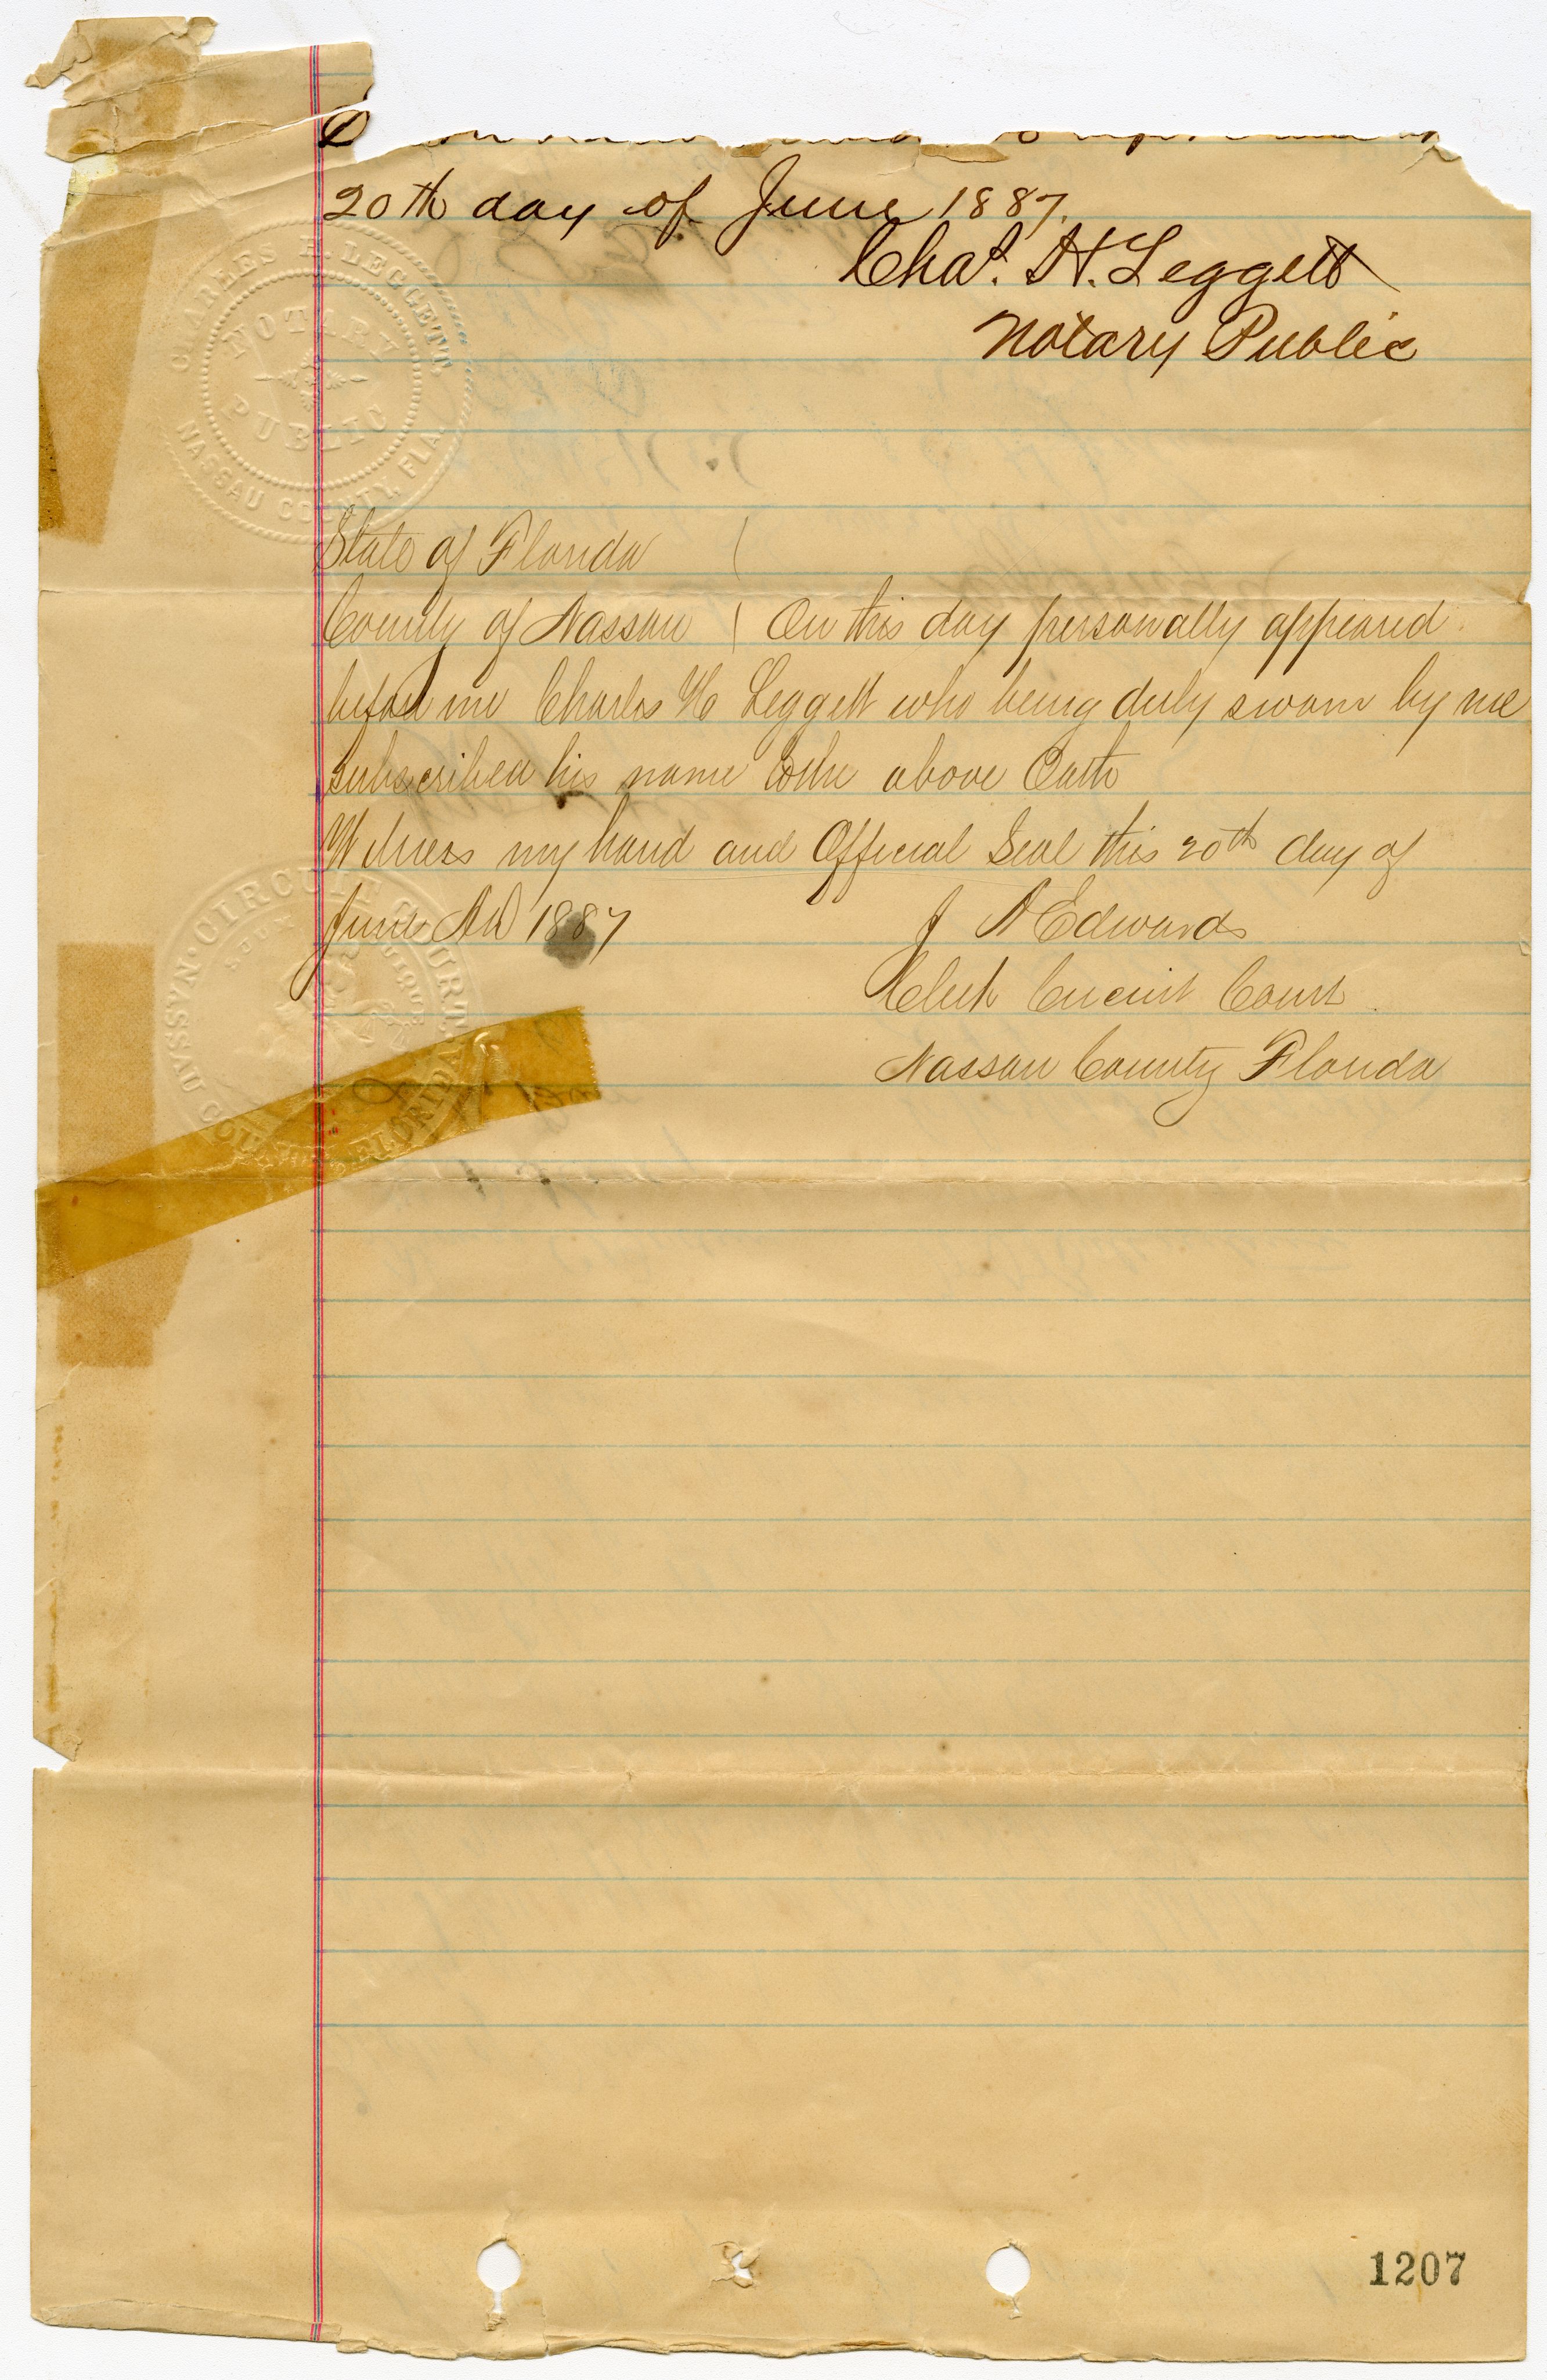 20th day of June 1887.
Chas. H. Leggett
Notary Public
CHARLES H. LEGGETT
NOTARY
PUBLIC
NASSAU COUNTY, FLA.
State of Florida (
County of Nassau ( On this day personally appeared
before me Charles H Leggett who being duly sworn by me
subscribed his name to the above Oath
Witness my hand and Official Seal this 20th day of
June AD 1887
J A Edwards
Clerk Circuit Court
Nassau County Florida
CIRCUIT COURT
NASSAU COUNTY FLORIDA
1207